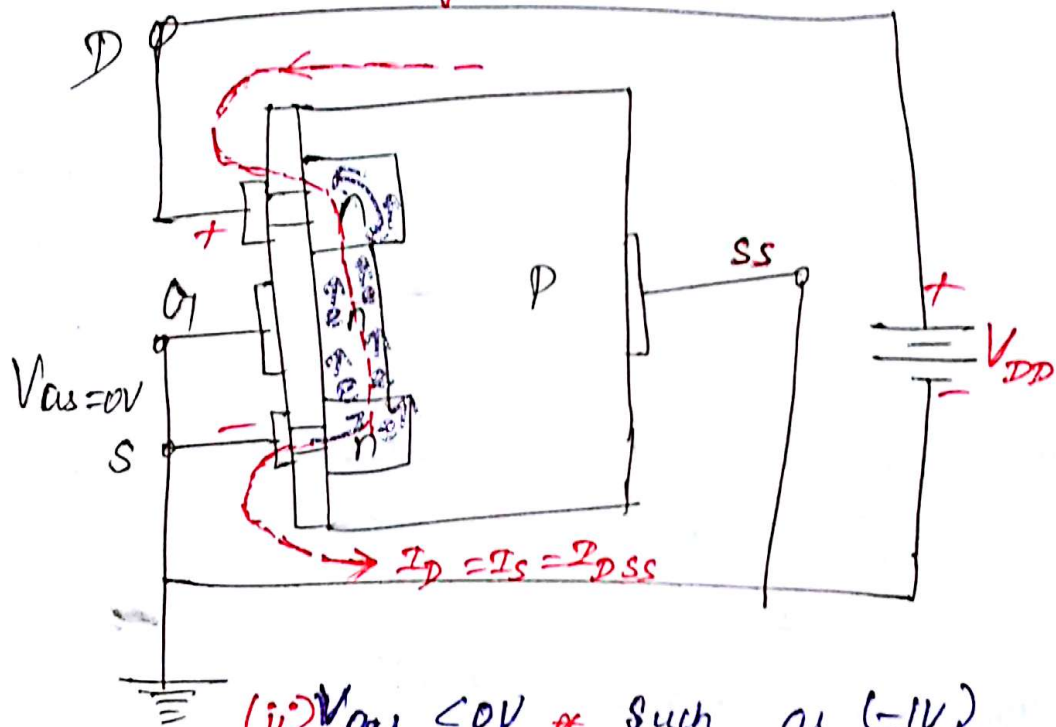 D
+
n
G
VGS=0V
n
P
SS
+
VDD
-
-
S
n
ID = IS = IDSS
(ii) VGS <0V * Such as (-1V)